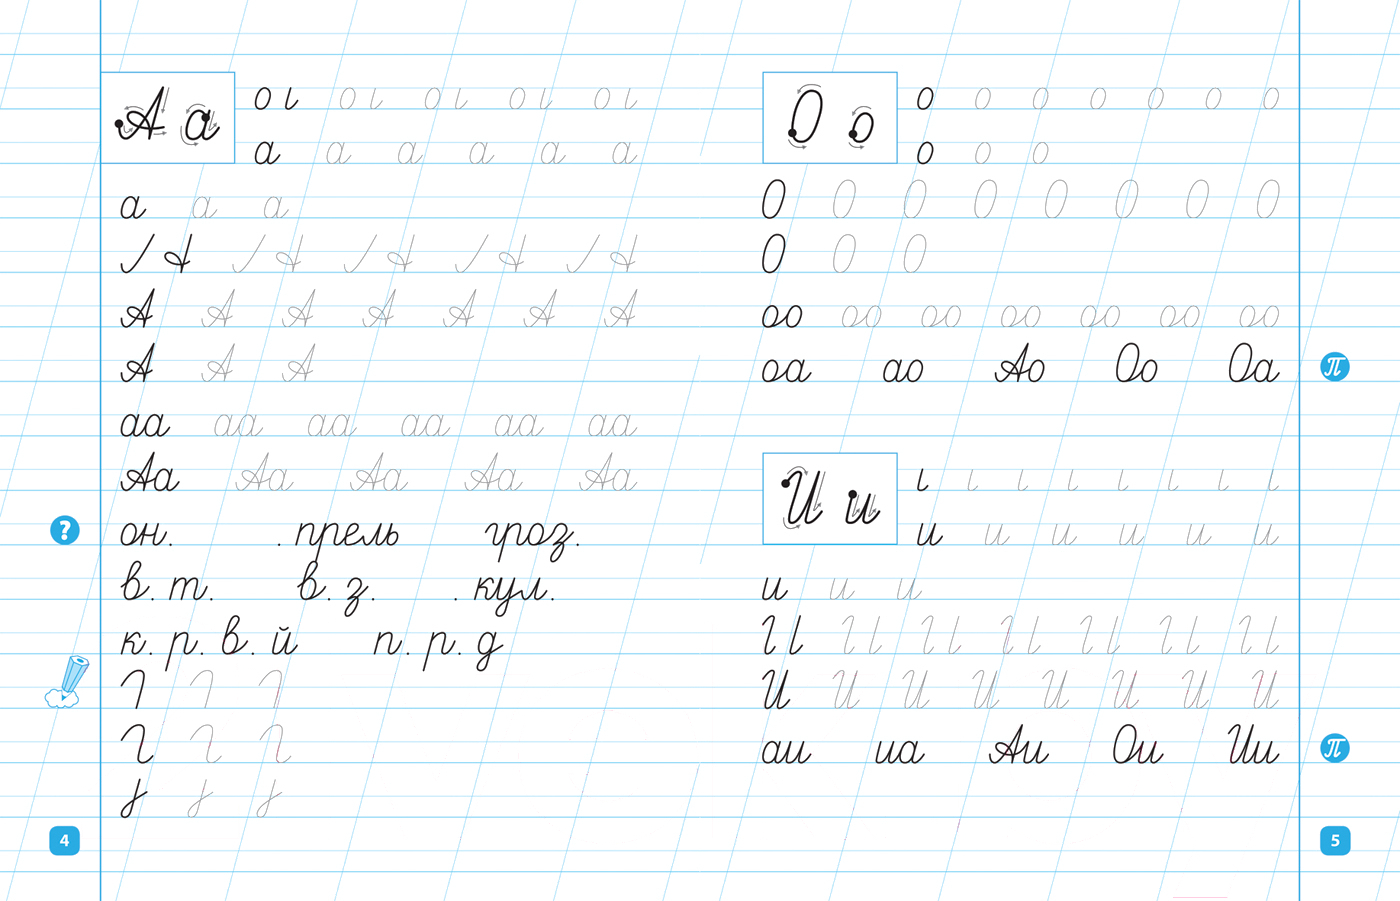 А а
о ι о ι о ι о ι о ι
а а а а а а
а а а
А А А А А А А
А А А
аа аа аа аа аа аа
Аа Аа Аа Аа Аа
? он. .прель гроз.
в.т. в.з. .кул.
к.р.в.й п.р.д
4
О о
о о о о о о о
о о о
О О О О О О О О
О О О
оо оо оо оо оо оо оо
оа ао Ао Оо Оа П
И и
ι ι ι ι ι ι ι ι
и и и и и и
и и и
И И И И И И И И
аи иа Аи Ои Ии П
5